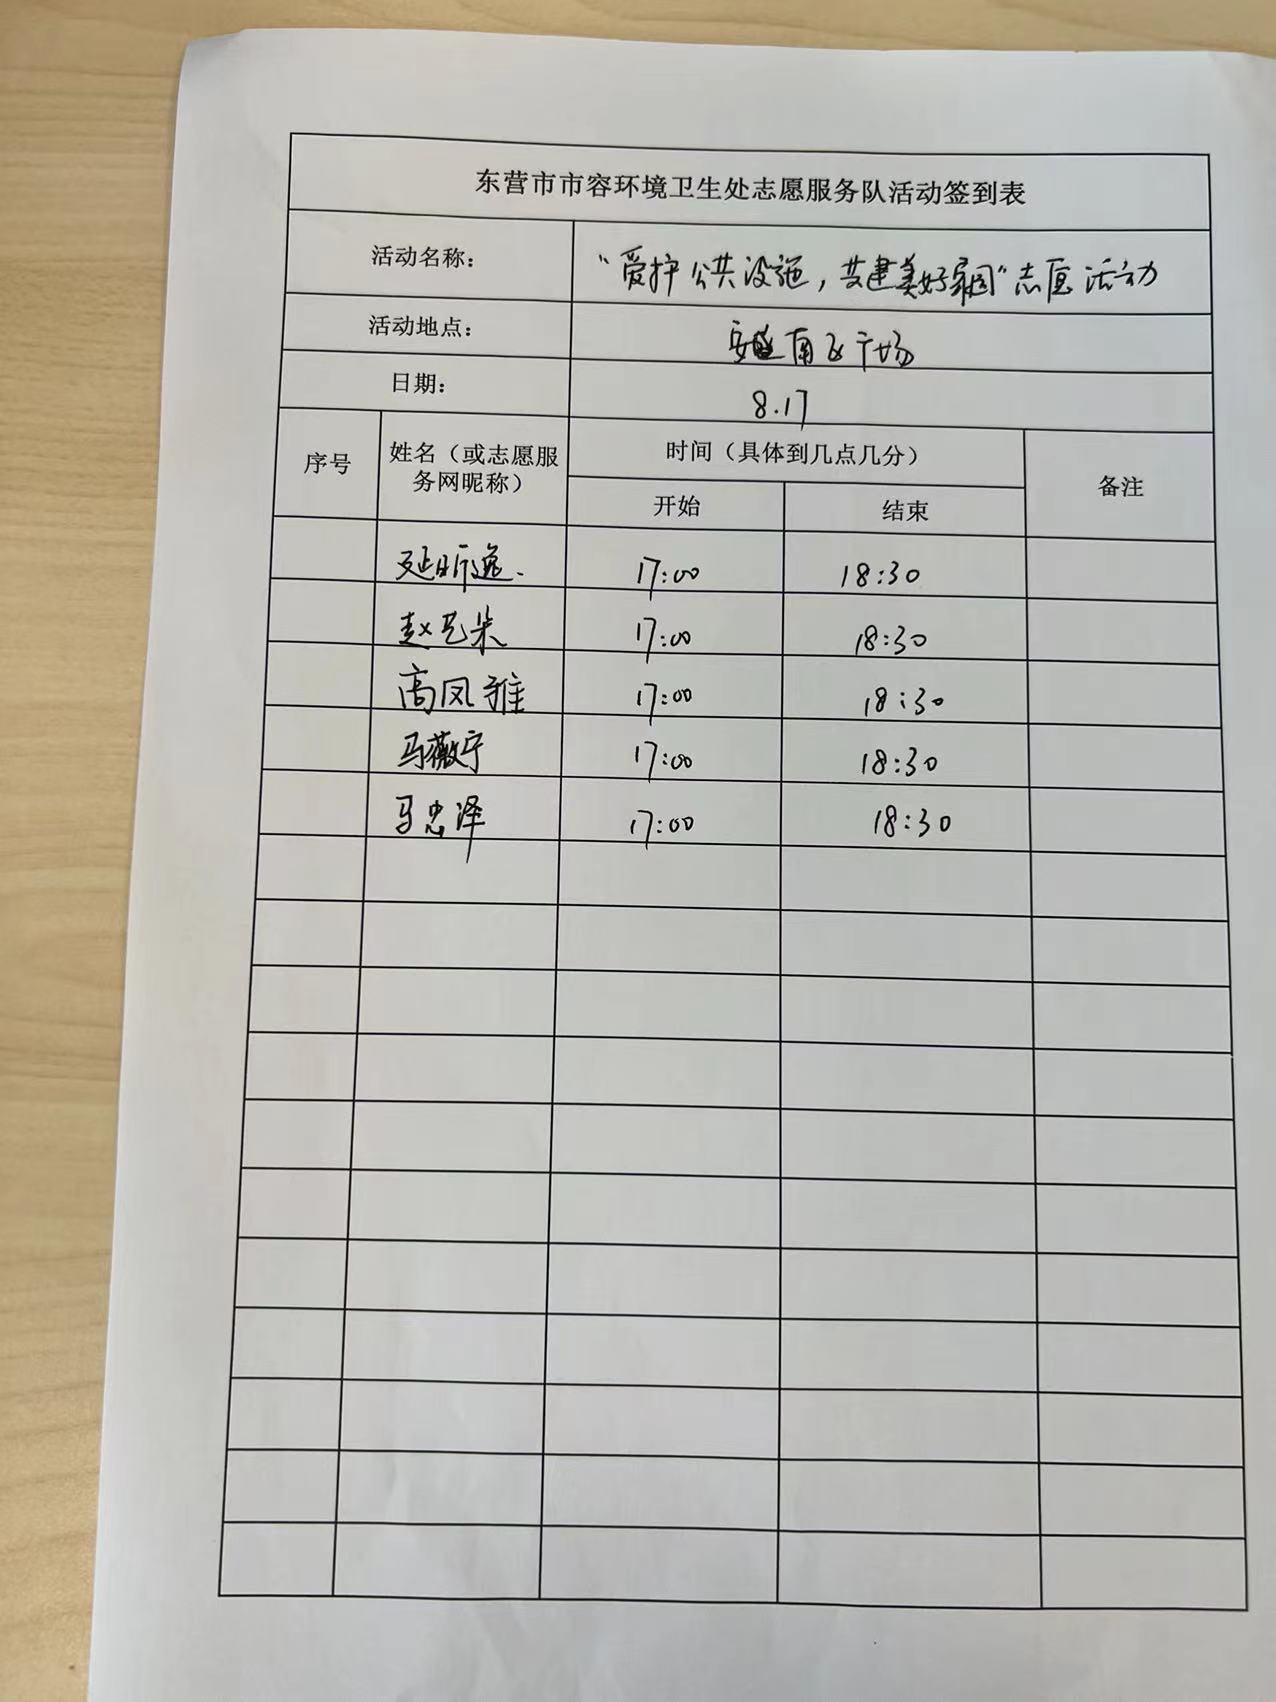 东营市市容环境卫生处志愿服务队活动签到表
活动名称： “爱护公共设施，共建美好家园”志愿活动
活动地点： 安南区广场
日期： 8.17
序号 姓名（或志愿服务网昵称） 时间（具体到几点几分） 备注
开始 结束
延昕逸. 17:00 18:30
赵艺朵 17:00 18:30
高凤雅 17:00 18:30
马薇宁 17:00 18:30
马忠泽 17:00 18:30